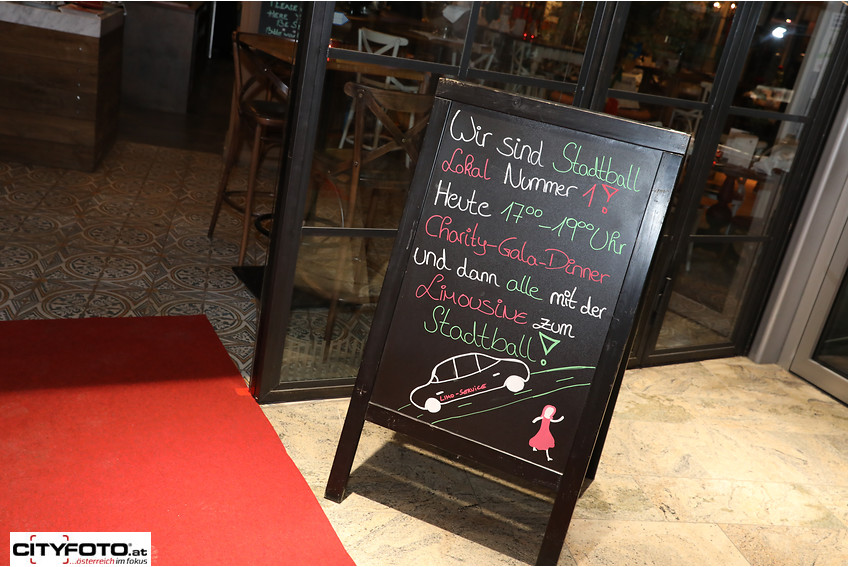 PLEASE
Wir sind Stadtball
Lokal Nummer 1!
Heute 17⁰⁰-19⁰⁰ Uhr
Charity-Gala-Dinner
und dann alle mit der
LIMOUSINE zum
Stadtball!
LIMO-SERVICE
CITYFOTO.at
...österreich im fokus